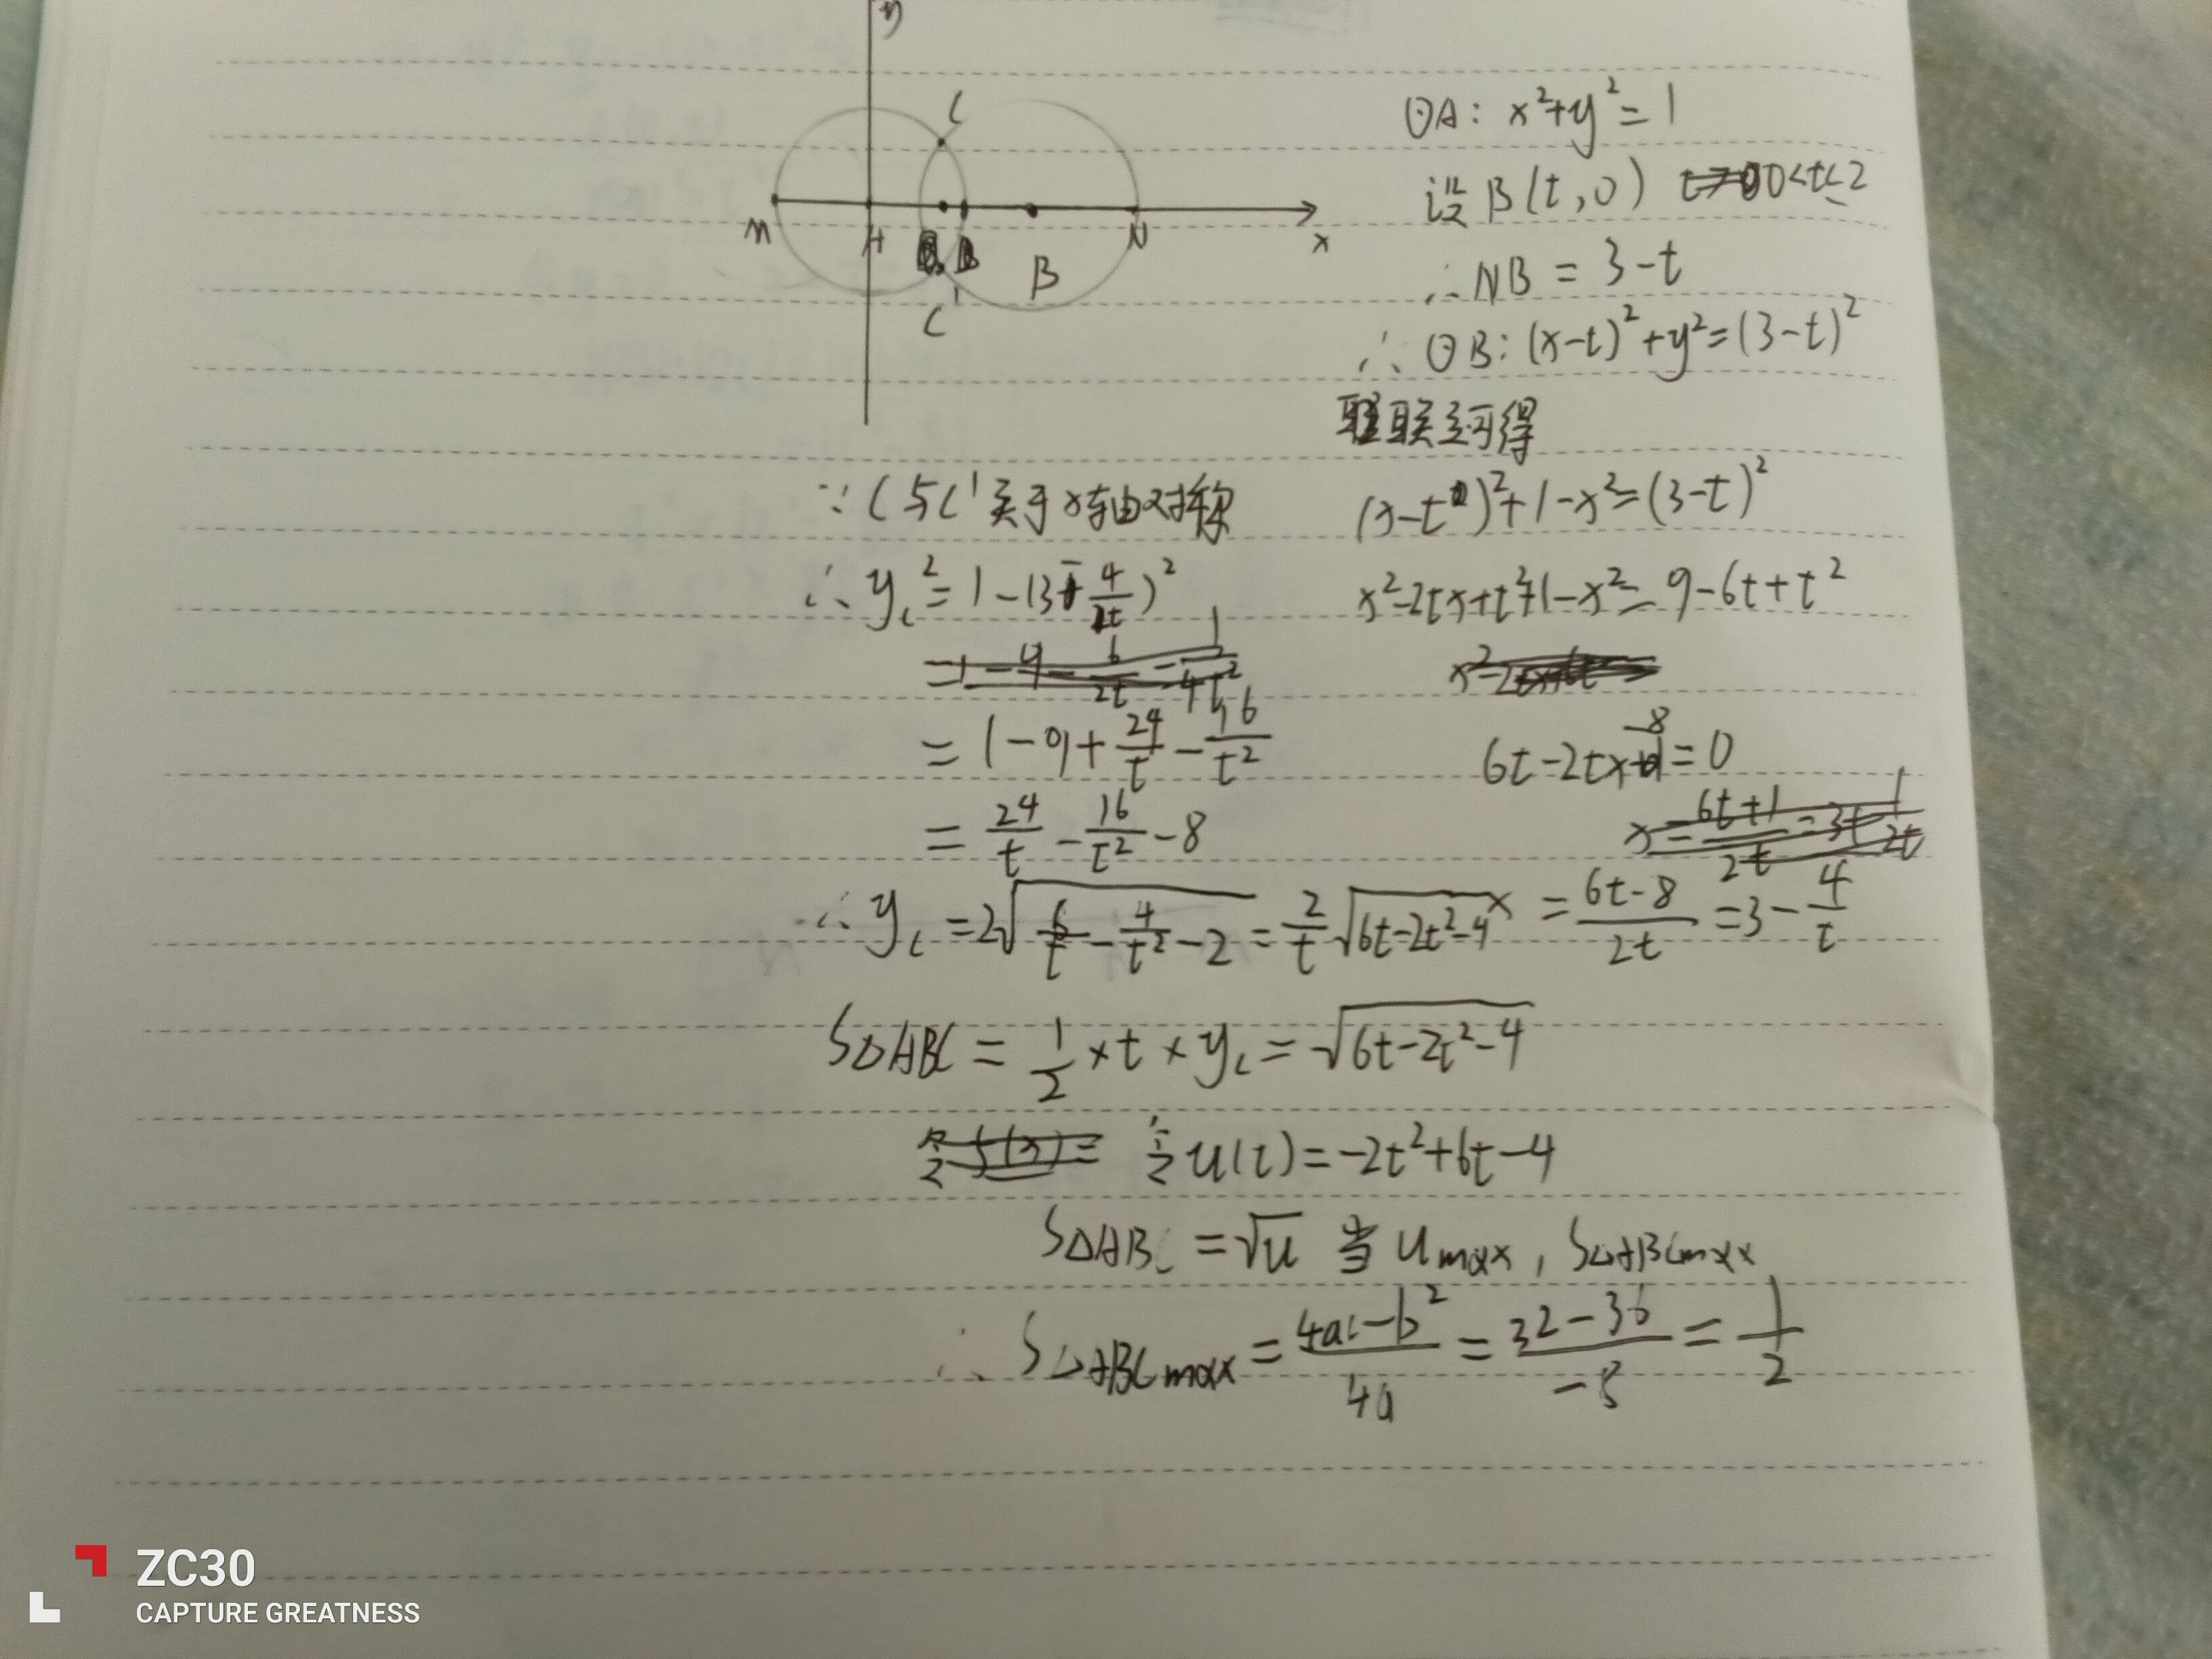 y
C
M
A
B
N
x
C'
⊙A: x²+y²=1
设 B(t,0) 0<t≤2
∴ NB = 3-t
∴ ⊙B: (x-t)²+y²=(3-t)²
联立可得
(x-t)²+1-x²=(3-t)²
x²-2tx+t²+1-x²=9-6t+t²
6t-2tx-8=0
x = \frac{6t-8}{2t} = 3-\frac{4}{t}
∵ C与C'关于x轴对称
∴ y_C² = 1-(3-\frac{4}{t})²
= 1-9+\frac{24}{t}-\frac{16}{t²}
= \frac{24}{t}-\frac{16}{t²}-8
∴ y_C = 2\sqrt{\frac{6}{t}-\frac{4}{t²}-2} = \frac{2}{t}\sqrt{6t-2t²-4}
S△ABC = \frac{1}{2}×t×y_C = \sqrt{6t-2t²-4}
令 u(t)=-2t²+6t-4
S△ABC = \sqrt{u} 当 u max, S△ABC max
∴ S△ABC max = \frac{4ac-b²}{4a} = \frac{32-36}{-8} = \frac{1}{2}
ZC30
CAPTURE GREATNESS